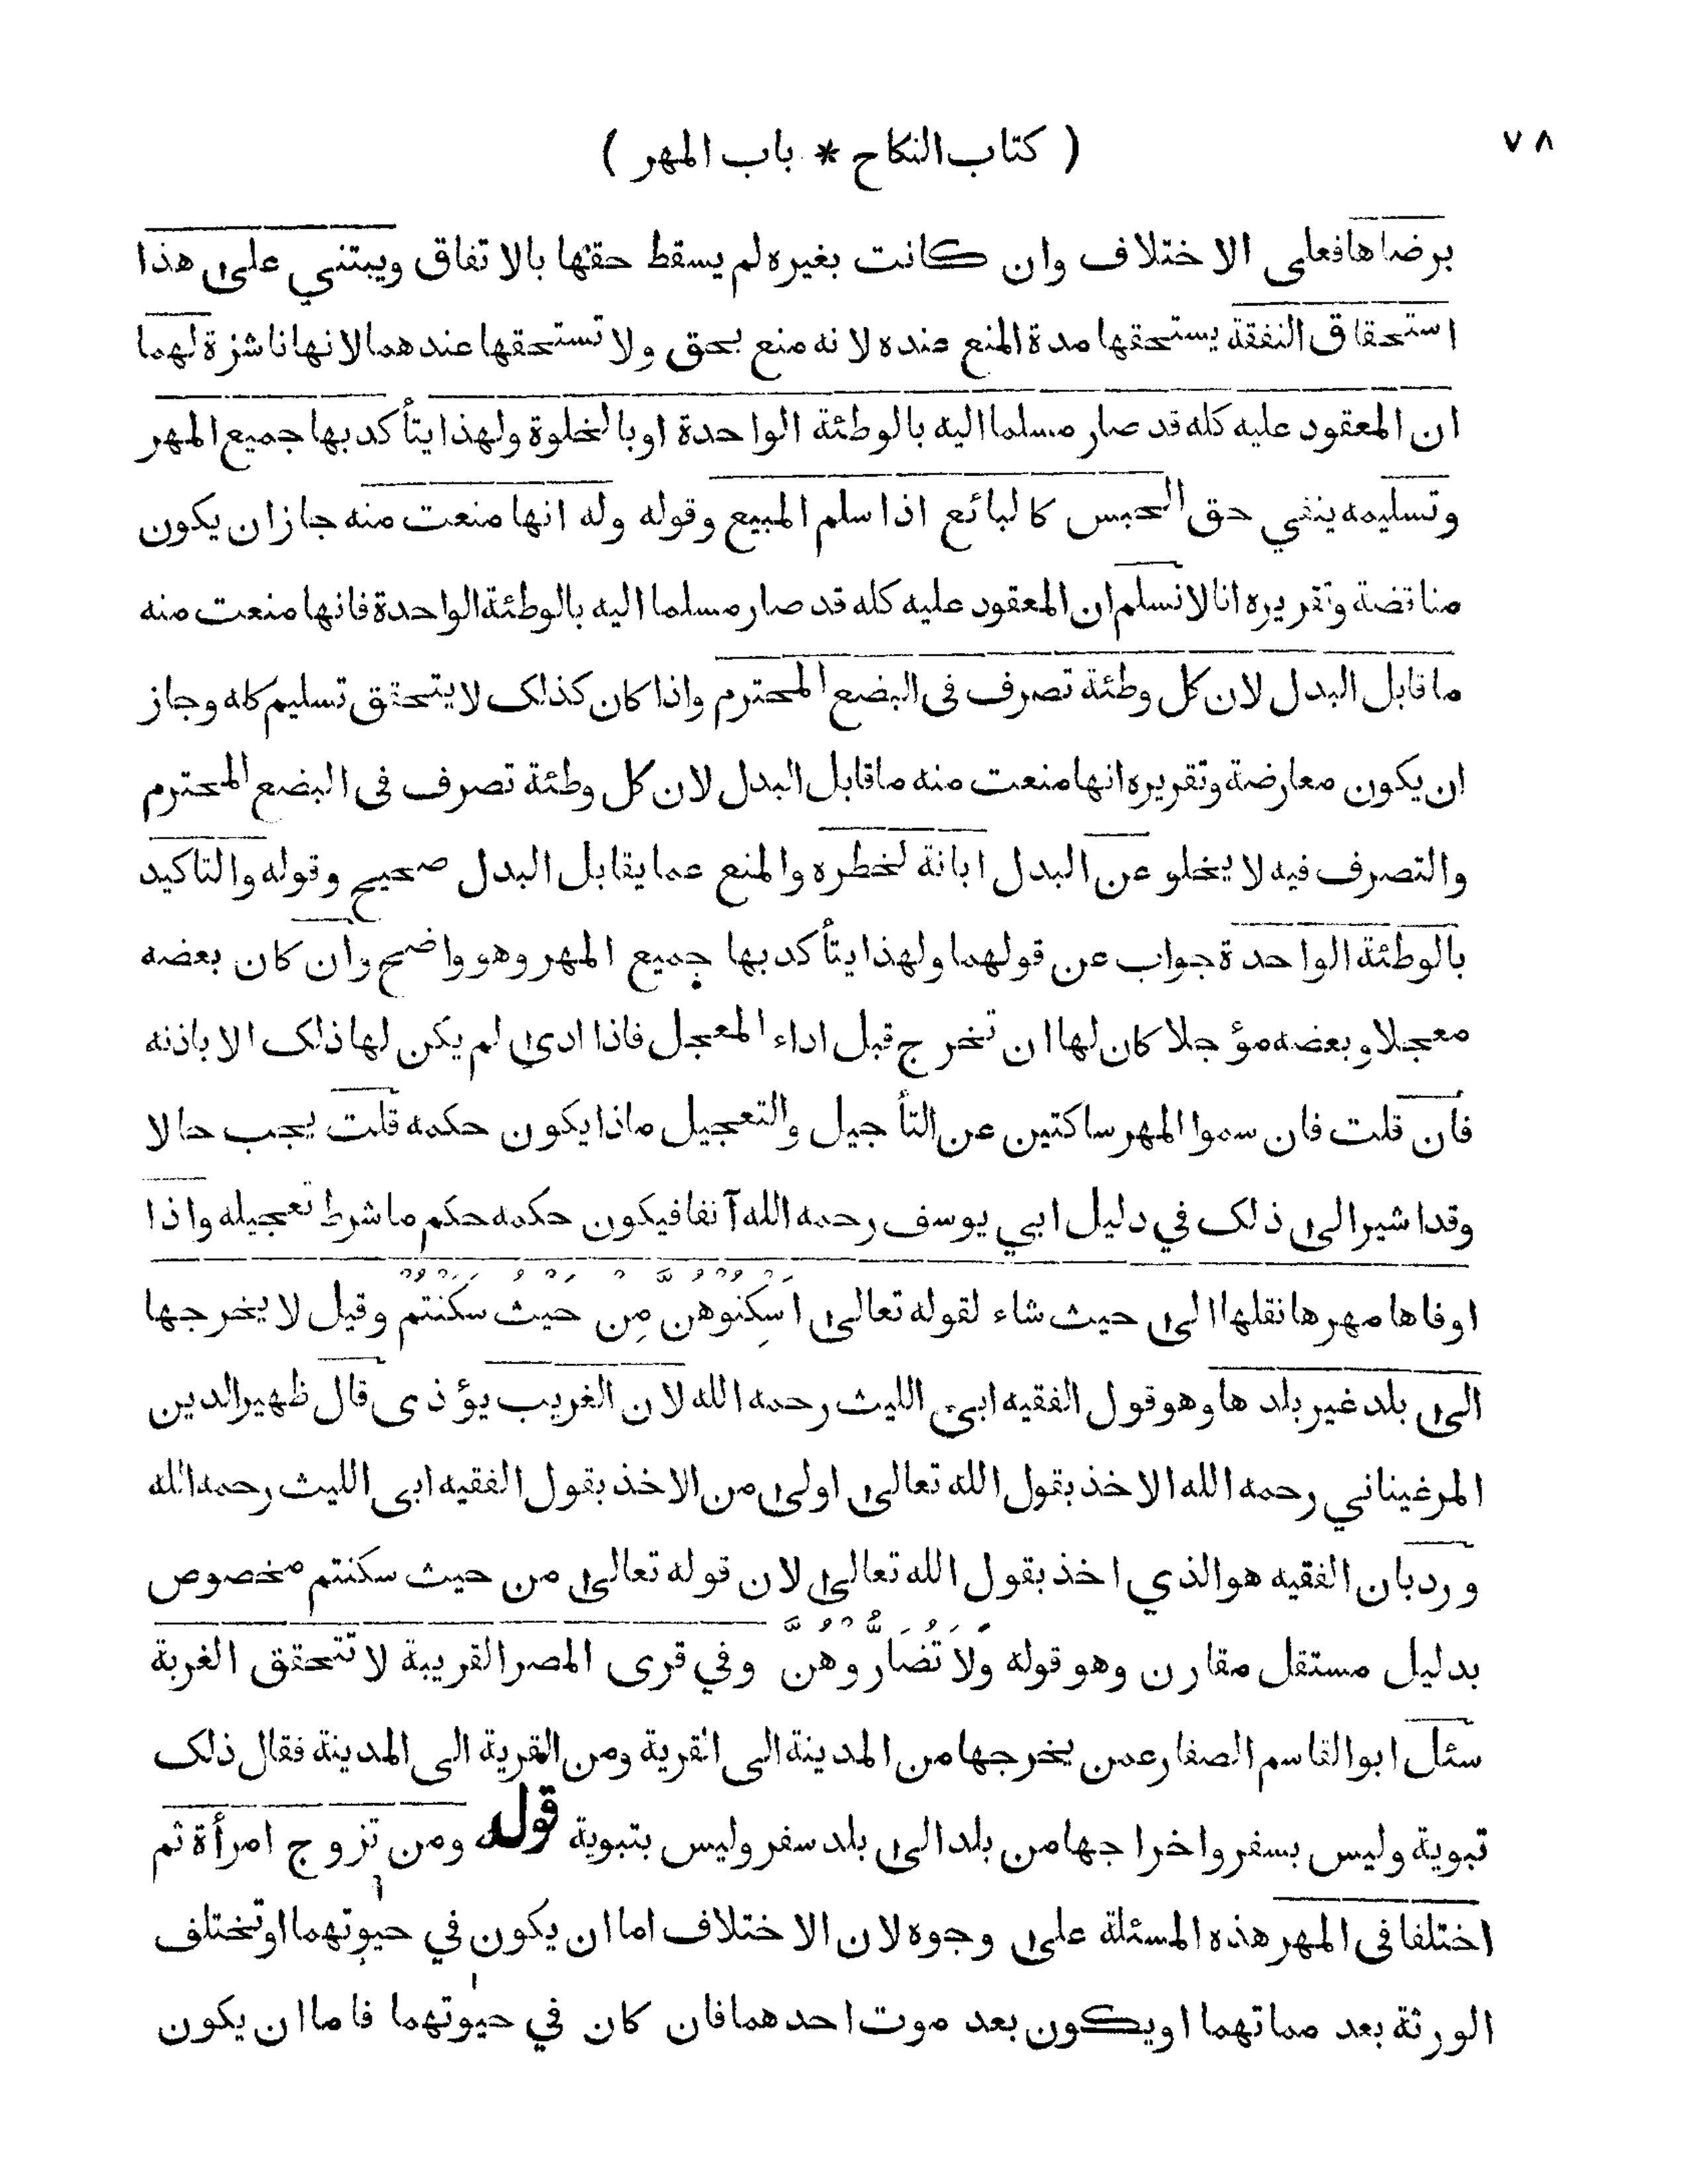 ٧٨
( كتاب النكاح * باب المهر )
برضاها فعلى الاختلاف وان كانت بغيره لم يسقط حقها بالاتفاق ويبتني على هذا
استحقاق النفقة يستحقها مدة المنع عنده لانه منع بحق ولا تستحقها عندهما لانها ناشزة لهما
ان المعقود عليه كله قد صار مسلما اليه بالوطئة الواحدة او بالخلوة ولهذا يتأكد بها جميع المهر
وتسليمه ينفي حق الحبس كالبائع اذا سلم المبيع وقوله وله انها منعت منه جاز ان يكون
مناقضة وتقريره انا لا نسلم ان المعقود عليه كله قد صار مسلما اليه بالوطئة الواحدة فانها منعت منه
ما قابل البدل لان كل وطئة تصرف فى البضع المحترم واذا كان كذلك لا يتحقق تسليم كله وجاز
ان يكون معارضة وتقريره انها منعت منه ما قابل البدل لان كل وطئة تصرف فى البضع المحترم
والتصرف فيه لا يخلو عن البدل ابانة لخطره والمنع عما يقابل البدل صحيح وقوله والتاكيد
بالوطئة الواحدة جواب عن قولهما ولهذا يتأكد بها جميع المهر وهو واضح وان كان بعضه
معجلا وبعضه مؤجلا كان لها ان تخرج قبل اداء المعجل فاذا ادى لم يكن لها ذلك الا باذنه
فان قلت فان سموا المهر ساكتين عن التأجيل والتعجيل ماذا يكون حكمه قلت يجب حالا
وقد اشير الى ذلك في دليل ابي يوسف رحمه الله آنفا فيكون حكمه حكم ما شرط تعجيله واذا
اوفاها مهرها نقلها الى حيث شاء لقوله تعالى اَسْكِنُوْهُنَّ مِنْ حَيْثُ سَكَنْتُمْ وقيل لا يخرجها
الى بلد غير بلدها وهو قول الفقيه ابى الليث رحمه الله لان الغريب يؤذى قال ظهير الدين
المرغيناني رحمه الله الاخذ بقول الله تعالى اولى من الاخذ بقول الفقيه ابى الليث رحمه الله
ورد بان الفقيه هو الذي اخذ بقول الله تعالى لان قوله تعالى من حيث سكنتم مخصوص
بدليل مستقل مقارن وهو قوله وَلَا تُضَارُّوْهُنَّ وفي قرى المصر القريبة لا تتحقق الغربة
سئل ابو القاسم الصفار عمن يخرجها من المدينة الى القرية ومن القرية الى المدينة فقال ذلك
تبوية وليس بسفر واخراجها من بلد الى بلد سفر وليس بتبوية قوله ومن تزوج امرأة ثم
اختلفا فى المهر هذه المسئلة على وجوه لان الاختلاف اما ان يكون في حيوتهما او تختلف
الورثة بعد مماتهما او يكون بعد موت احدهما فان كان في حيوتهما فاما ان يكون